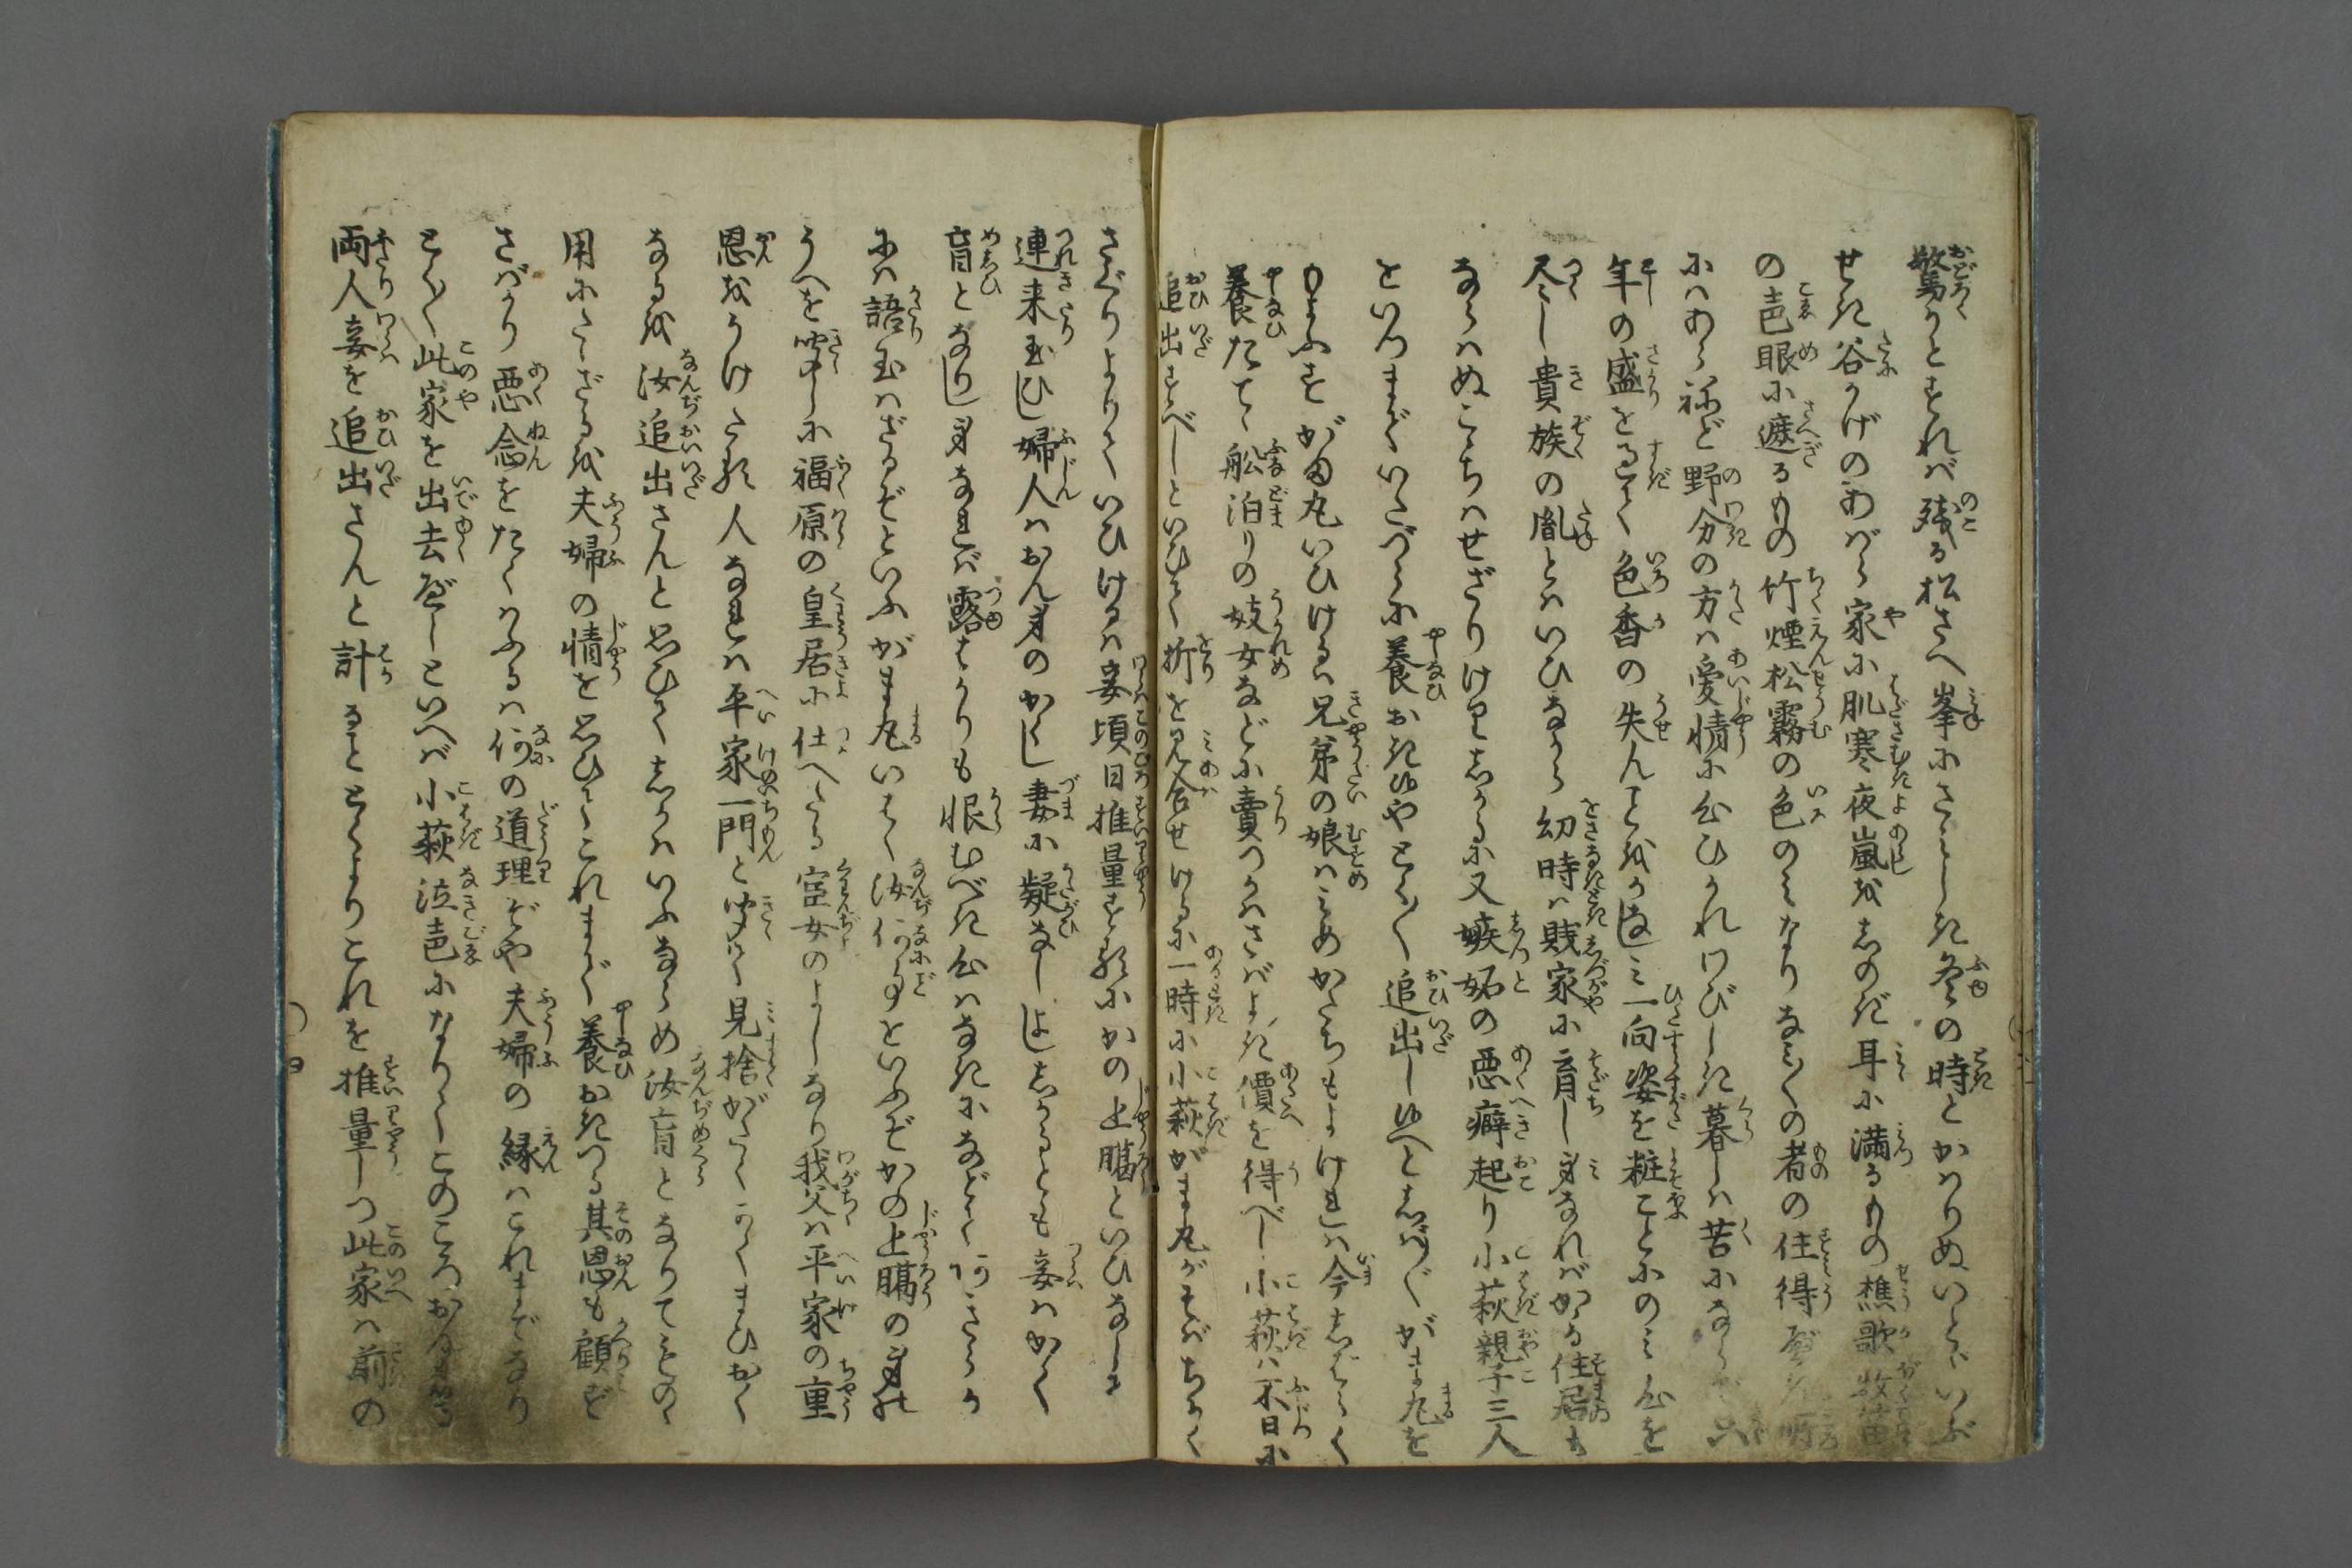 驚かとすれバ残る松さへ峯にさみしき冬の時とかハりぬいとゞいぶ
せき谷かげのあバら家に肌寒夜嵐をしのぎ耳に満るもの樵歌牧笛
の声眼に遮るもの竹煙松霧の色のみなりなみ〳〵の者の住得べき所
にハあらねど野分の方ハ愛情に心ひかれわびしき暮しハ苦にならず只
年の盛をすぎて色香の失んことをかなしミ一向姿を粧ことにのミ心を
尽し貴族の胤とハいひながら幼時ハ賎家に育し身なれバかゝる住居も
ならハぬこゝちハせざりけりしかるに又嫉妬の悪癖起り小萩親子三人
をいつまでいたづらに養おき給やとく〳〵追出し給へとしバ〴〵がま丸を
すゝがま丸いひけるハ兄弟の娘ハみめかたちもよけれハ今しばらく
養たてゝ舩泊りの妓女などに賣つかハさバよき價を得べし小萩ハ不日に
追出すべしといひて折を見合せけるに一時小萩がま丸がそバちかく
さぐりよりていひけるハ妾頃日推量するにかの上臈といひなして
連来玉ひし婦人ハおん身のかくし妻に疑なしよししかるとも妾ハかく
盲となりし身なれバ露ばかりも恨むべき心ハなきになどてあきらか
にハ語玉ハざるぞといふがま丸いはく汝何事をいふぞかの上臈の身の
うへを聞しに福原の皇居に仕へたる官女のよしなり我父ハ平家の重
恩をうけたる人なれハ平家一門と聞てハ見捨がたくかくまひおく
なるを汝追出さんと思ひてしかハいふならめ汝盲となりてものゝ
用にたゝざるを夫婦の情を思ひてこれまで養おきつる其恩も顧ず
さばかり悪念をたくハふるハ何の道理ぞや夫婦の縁ハこれまでなり
とく〳〵此家を出去べしといへバ小萩泣声になりてこのころおん身等
両人妾を追出さんと計ることとくよりこれを推量しつ此家ハ前の